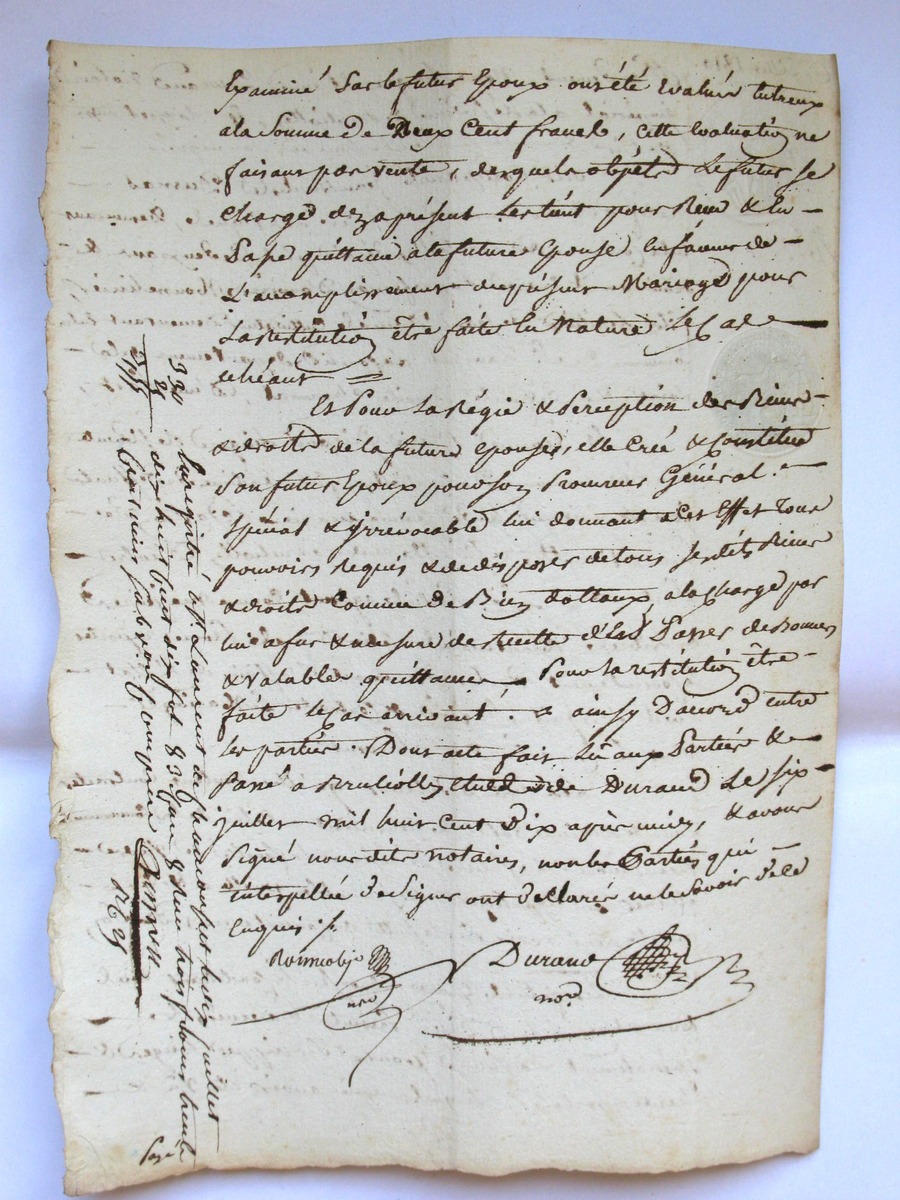 Examiné Par le futur Epoux ont été Evalués entreux
a la Somme de Deux Cent francs, cette Evaluation ne
faisant pas vente, desquels objets Le futur se
charge dez aprésent Les tient pour Reçu & En
Passe quittance a la future Epouse En faveur de
L'accomplissement du présent Mariage pour
La restitution être faite En Nature Le Cas
echéant
Et Pour La Régie & Perception des Biens
& droits de la future epouse, elle Crée & Constitue
Son futur Epoux pour son Procureur Général
spécial & Irrévocable lui donnant a Cet Effet Tous
pouvoirs Requis & de disposer de tous Sesdits Biens
& droits Comme de Bien dottaux a la Charge par
lui a fur & mesure de Recette d'En Passer de Bonnes
& valables quittances Pour La restitution être
faite le Cas arrivant. ainsy D'accord entre
Les parties. Dont acte fait Lu aux Parties &
Passé a Etude de Durand Le six
juillet mil huit Cent Dix après midy, & avons
Signé nous dits notaires, non les Parties qui
interpellées de Signer ont déclaré ne le Savoir de ce
Enquis
Durand
not
Enregistré à St Laurent de Chamousset huit juillet
dix huit Cent dix fol 83 Case 8 Reçu trois francs trente
Centimes Subvention Comprise